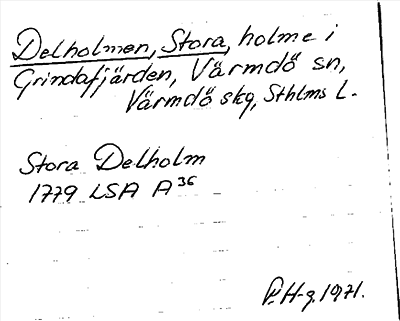 Delholmen, Stora, holme i
Grindafjärden, Värmdö sn,
Värmdö skg, Sthlms l.
Stora Delholm
1779 LSA A 36
P. H-g. 1971.